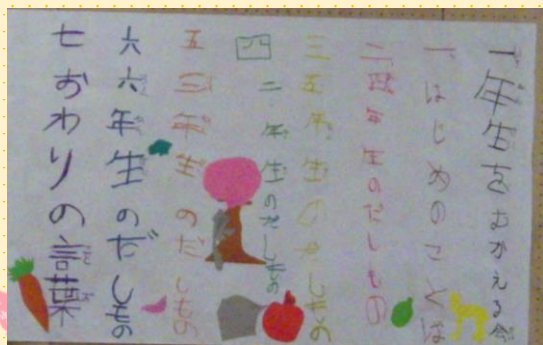 一年生をむかえる会
一 はじめのことば
二 四年生のだしもの
三 五年生のだしもの
四 二年生のだしもの
五 三年生のだしもの
六 六年生のだしもの
七 おわりの言葉